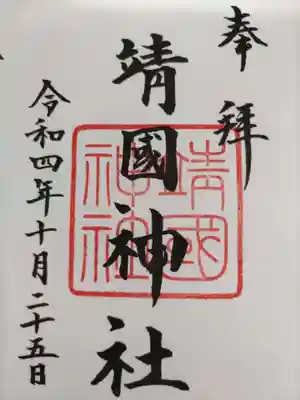 奉拝
靖國神社
靖國
神社
令和四年十月二十五日